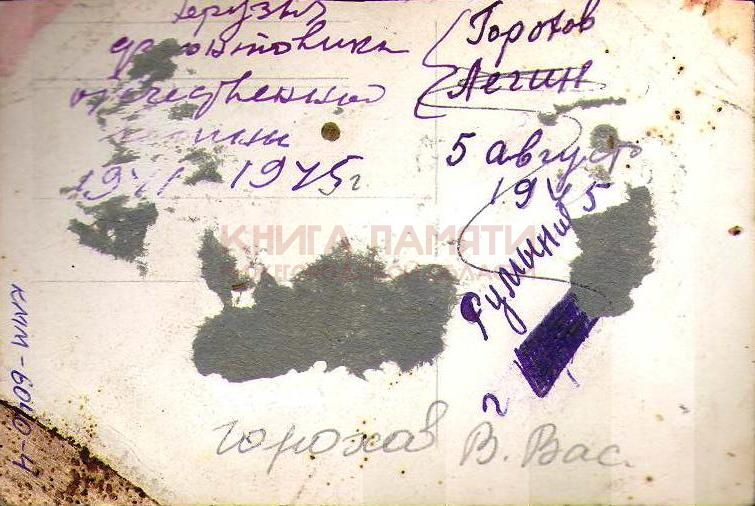 друзья
фронтовики
отечественной
войны
1941-1945г
Горохов
Легин
5 август
1945
Румыния
г
КНИГА ПАМЯТИ
КММ-6040-4
горохов В. Вас.